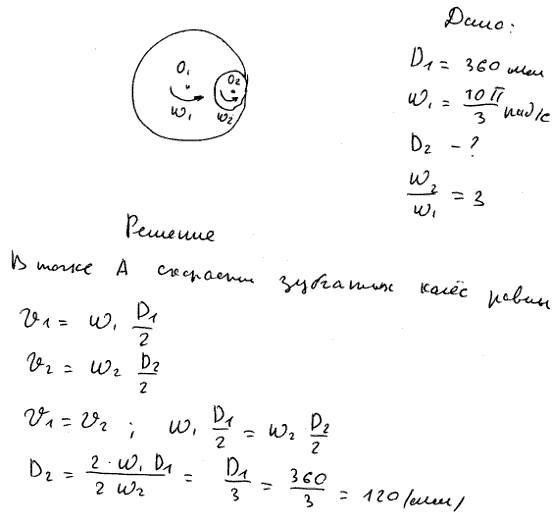 Дано:
D₁ = 360 мм
ω₁ = 10π/3 рад/с
D₂ - ?
ω₂/ω₁ = 3
O₁
O₂
ω₁
ω₂
Решение
В точке А скорости зубчатых колёс равны
v₁ = ω₁ D₁/2
v₂ = ω₂ D₂/2
v₁ = v₂ ; ω₁ D₁/2 = ω₂ D₂/2
D₂ = 2·ω₁ D₁/2 ω₂ = D₁/3 = 360/3 = 120 (мм)